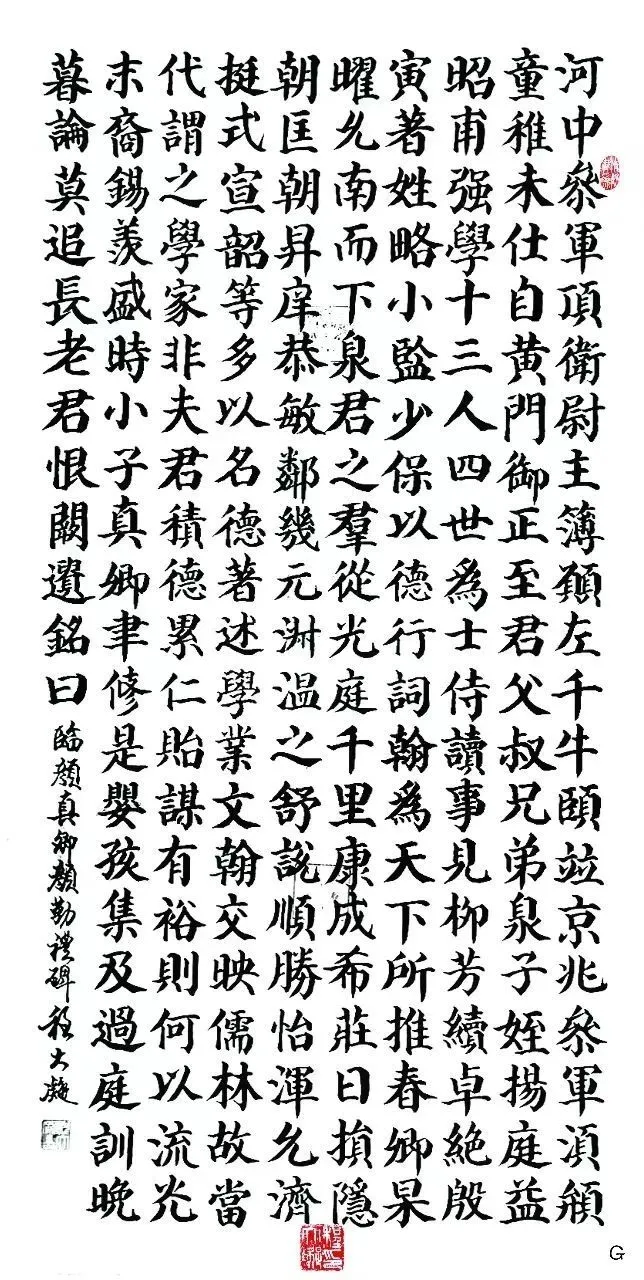 河中叅軍頂衛尉主簿願左千牛頤竝京兆叅軍湏
童稚未仕自黄門御正至君父叔兄弟泉子姪揚庭益
昭甫强學十三人四世為士侍讀事見柳芳續卓絶殷
寅著姓略小監少保以德行詞翰為天下所推春卿杲
曜允南而下泉君之羣從光庭千里康成希莊日損隱
朝匡朝昇庠恭敏鄰幾元淵温之舒說順勝怡渾允濟
挺式宣韶等多以名德著述學業文翰交映儒林故當
代謂之學家非夫君積德累仁貽謀有裕則何以流光
末裔錫羨盛時小子真卿聿修是嬰孩集及過庭訓晚
暮論莫追長老君恨闕遺銘曰
臨顏真卿顏勤禮碑 程大凝
G